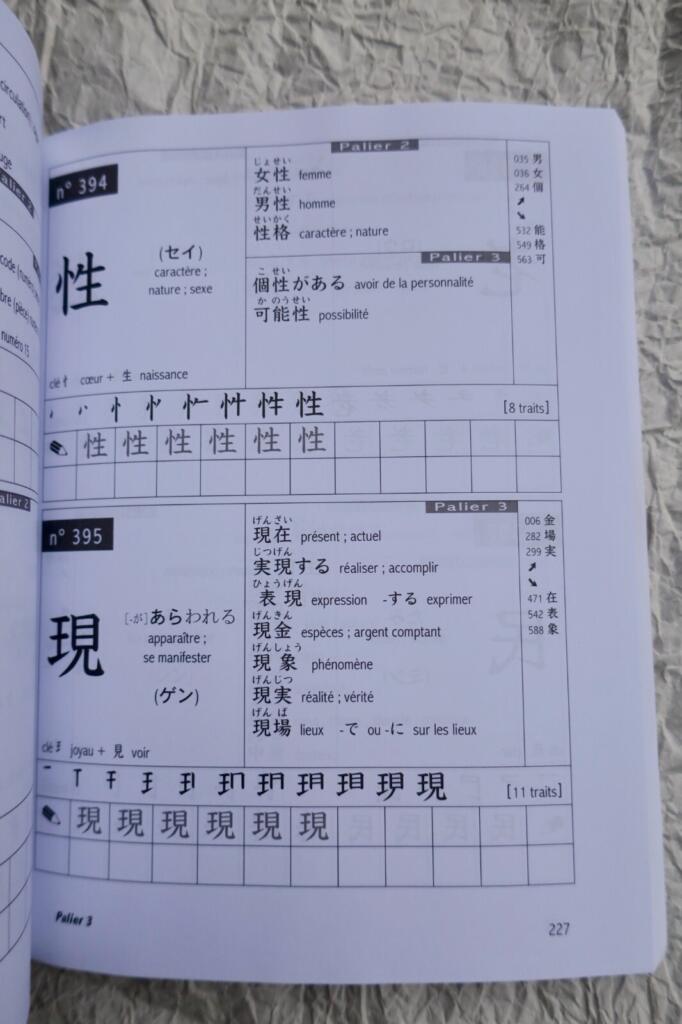 circulation
uge
Palier 2
numéro 15
Palier 2
n° 394
性
(セイ)
caractère ;
nature ; sexe
clé 忄 cœur + 生 naissance
Palier 2
じょせい
女性 femme
だんせい
男性 homme
せいかく
性格 caractère ; nature
Palier 3
こ せい
個性がある avoir de la personnalité
か のうせい
可能性 possibilité
035 男
036 女
264 個
➚
➘
532 能
549 格
563 可
性
[8 traits]
性 性 性 性 性 性
n° 395
現
[-が]あらわれる
apparaître ;
se manifester
(ゲン)
clé 王 joyau + 見 voir
Palier 3
げんざい
現在 présent ; actuel
じつげん
実現する réaliser ; accomplir
ひょうげん
表現 expression -する exprimer
げんきん
現金 espèces ; argent comptant
げんしょう
現象 phénomène
げんじつ
現実 réalité ; vérité
げん ば
現場 lieux -で ou -に sur les lieux
006 金
282 場
299 実
➚
➘
471 在
542 表
588 象
現
[11 traits]
現 現 現 現 現 現
Palier 3
227